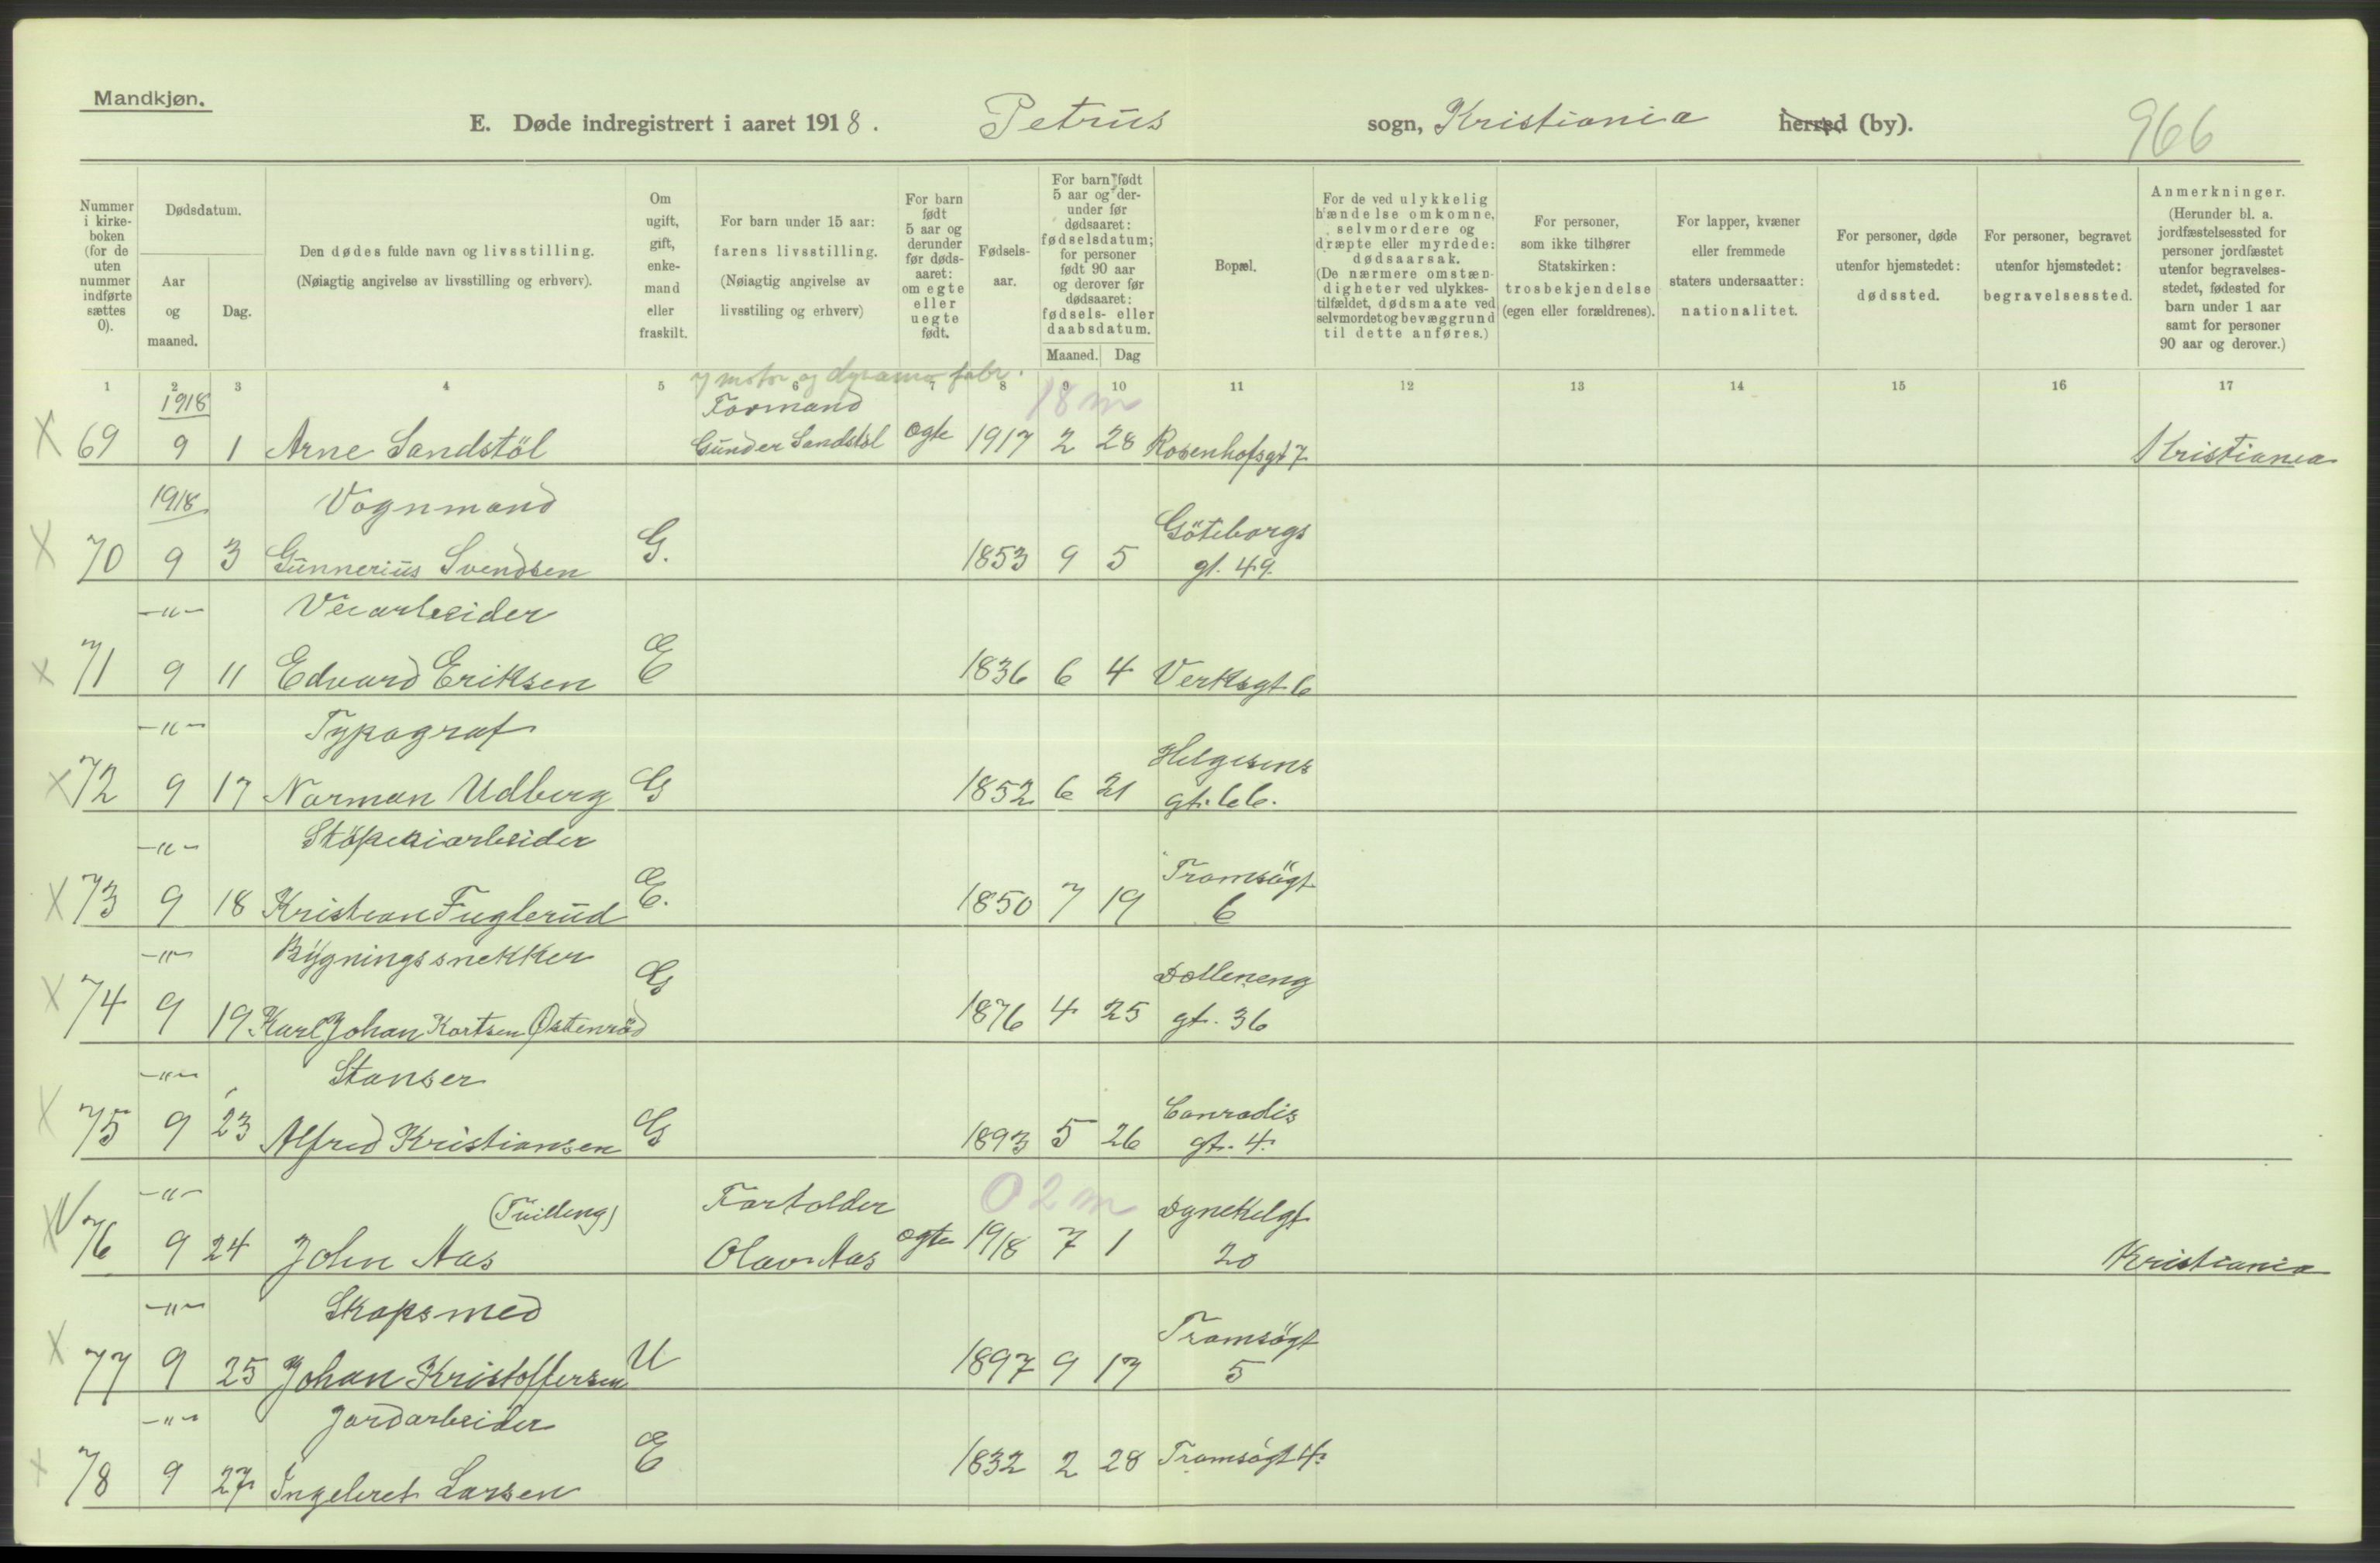 Mandkjøn.
E. Døde indregistrert i aaret 1918. Petrus sogn, Kristiania herred (by). 966
Nummer i kirkeboken (for de uten nummer indførte sættes 0).
Dødsdatum.
Aar og maaned.
Dag.
Den dødes fulde navn og livsstilling.
(Nøiagtig angivelse av livsstilling og erhverv).
Om ugift, gift, enkemand eller fraskilt.
For barn under 15 aar: farens livsstilling.
(Nøiagtig angivelse av livsstiling og erhverv)
For barn født 5 aar og derunder før dødsaaret: om egte eller uegte født.
Fødselsaar.
For barn født 5 aar og derunder før dødsaaret: fødselsdatum; for personer født 90 aar og derover før dødsaaret: fødsels- eller daabsdatum.
Maaned. Dag
Bopæl.
For de ved ulykkelig hændelse omkomne, selvmordere og dræpte eller myrdede: dødsaarsak.
(De nærmere omstændigheter ved ulykkestilfældet, dødsmaate ved selvmordet og bevæggrund til dette anføres.)
For personer, som ikke tilhører Statskirken: trosbekjendelse (egen eller forældrenes).
For lapper, kvæner eller fremmede staters undersaatter: nationalitet.
For personer, døde utenfor hjemstedet: dødssted.
For personer, begravet utenfor hjemstedet: begravelsessted.
Anmerkninger.
(Herunder bl. a. jordfæstelsessted for personer jordfæstet utenfor begravelsesstedet, fødested for barn under 1 aar samt for personer 90 aar og derover.)
1 2 3 4 5 6 7 8 9 10 11 12 13 14 15 16 17
motor og dynamo fabr.
1918 Formand 18 m
X 69 9 1 Arne Sandstöl Gunder Sandstöl egte 1917 2 28 Rosenhofsgt 7 Kristiania
1918 Vognmand Göteborgs
X 70 9 3 Gunnerius Svendsen G. 1853 9 5 gt. 49.
-"- Veiarbeider
X 71 9 11 Edvard Eriksen E 1836 6 4 Verksgt 6
-"- Typograf Helgesens
X 72 9 17 Norman Udberg G 1852 6 21 gt. 66.
-"- Stöperiarbeider Tromsögt
X 73 9 18 Kristian Fuglerud E. 1850 7 19 6
-"- Bygningssnekker Dælleneng
X 74 9 19 Karl Johan Kortsen Østenröd G 1876 4 25 gt. 36
-"- Stanser Conradis
X 75 9 23 Alfred Kristiansen G 1893 5 26 gt. 4.
-"- (Tvilling) Forholder 0 2 m Dynekelgt
X 76 9 24 John Aas Olav Aas egte 1918 7 1 20 Kristiania
-"- Skapsmed Tromsögt
X 77 9 25 Johan Kristoffersen U 1897 9 17 5
-"- Jordarbeider
X 78 9 27 Ingebret Larsen E 1832 2 28 Tromsögt 4.